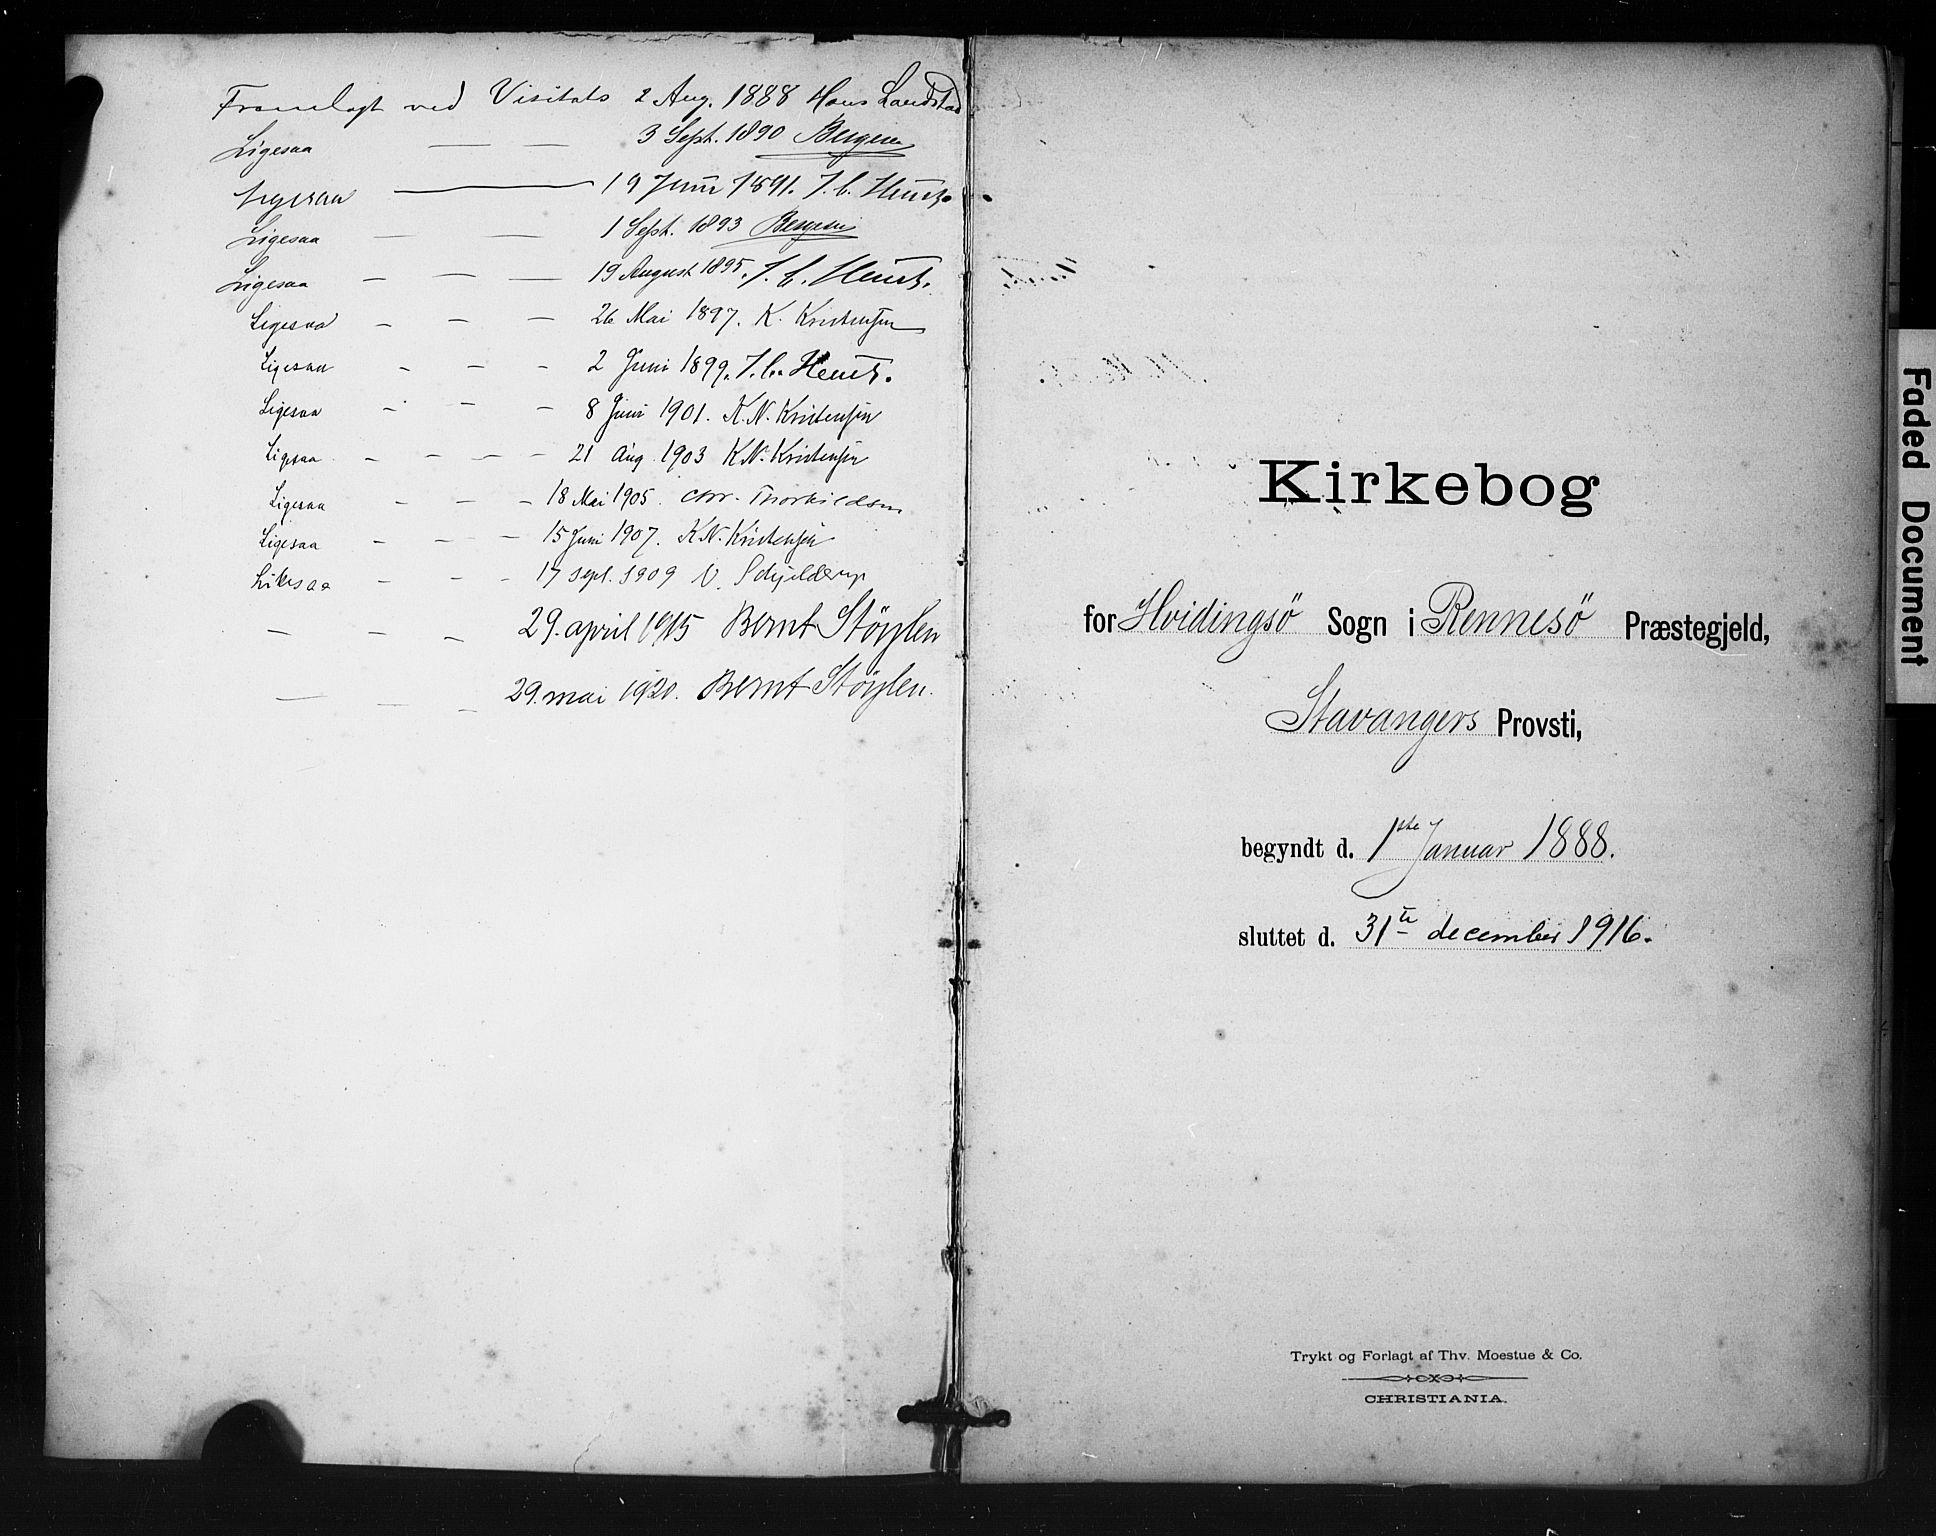 Fremlagt ved Visitats 2 Aug. 1888 Hans Landstad
Ligesaa — — 3 Sept. 1890 Bergesen
Ligesaa — 19 Juni 1891. J. C. Heuch.
Ligesaa — — 1 Sept. 1893 Bergesen
Ligesaa — — — 19 August 1895. J. C. Heuch.
Ligesaa — — — 26 Mai 1897. K. Kristensen
Ligesaa - - - 2 Juni 1899. J. C. Heuch.
Ligesaa - - - 8 Juni 1901. K. N. Kristensen
Ligesaa - - - - 21 Aug 1903 K N. Kristensen
Ligesaa - - - 18 Mai 1905. Chr. Thorkildsen
Ligesaa - - - 15 Juni 1907. K N. Kristensen
Likesaa - - - 17 sept. 1909 V. Schjelderup
— - - 29. april 1915 Bernt Støylen
— — - 29. mai 1920. Bernt Støylen.
Kirkebog
for Hvidingsö Sogn i Rennesö Præstegjeld,
Stavangers Provsti,
begyndt d. 1ste Januar 1888.
sluttet d. 31te december 1916.
Trykt og Forlagt af Thv. Moestue & Co.
CHRISTIANIA.
Faded Document